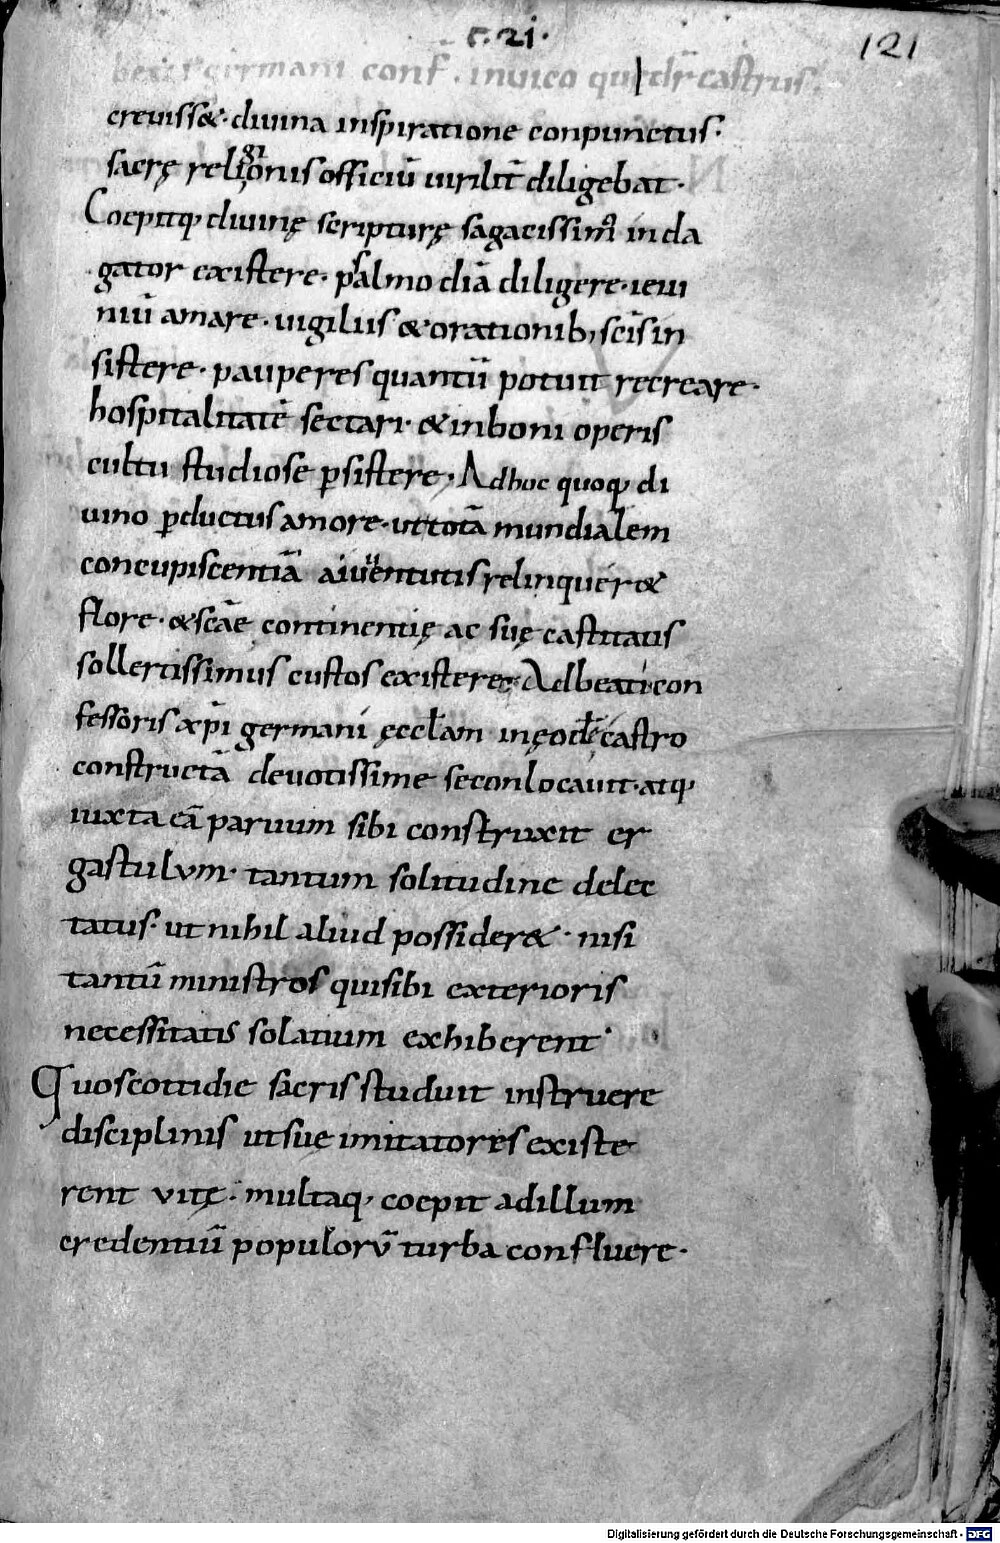 c. 21.
121
beati germani conf. in vico qui dr castrus.
creuiss&. diuina inspiratione conpunctus.
sacrę religionis officiū uirilit̄ diligebat.
Coepitq; diuinę scripturę sagacissimꝰ inda
gator existere. psalmodiā diligere. ieiu
niū amare. uigiliis & orationib; sc̄is in
sistere. pauperes quantū potuit recreare.
hospitalitatē sectari. & in boni operis
cultu studiose ꝑsistere. Adhoc quoq; di
uino ꝑductus amore. ut totā mundialem
concupiscentiā a iuuentutis relinquer&
flore. & sc̄ae continentię ac suę castitatis
sollertissimus custos existere. Ad beati con
fessoris xp̄i germani ęccl̄am in ęodē castro
constructā deuotissime se conlocauit. atq;
iuxta eā paruum sibi construxit er
gastulum. tantum solitudine delec
tatus. ut nihil aliud possider&. nisi
tantū ministros qui sibi exterioris
necessitatis solatium exhiberent.
Quos cottidie sacris studuit instruere
disciplinis ut suę imitatores existe
rent vitę. multaq; coepit ad illum
credentiū populorū turba confluere.
Digitalisierung gefördert durch die Deutsche Forschungsgemeinschaft - DFG